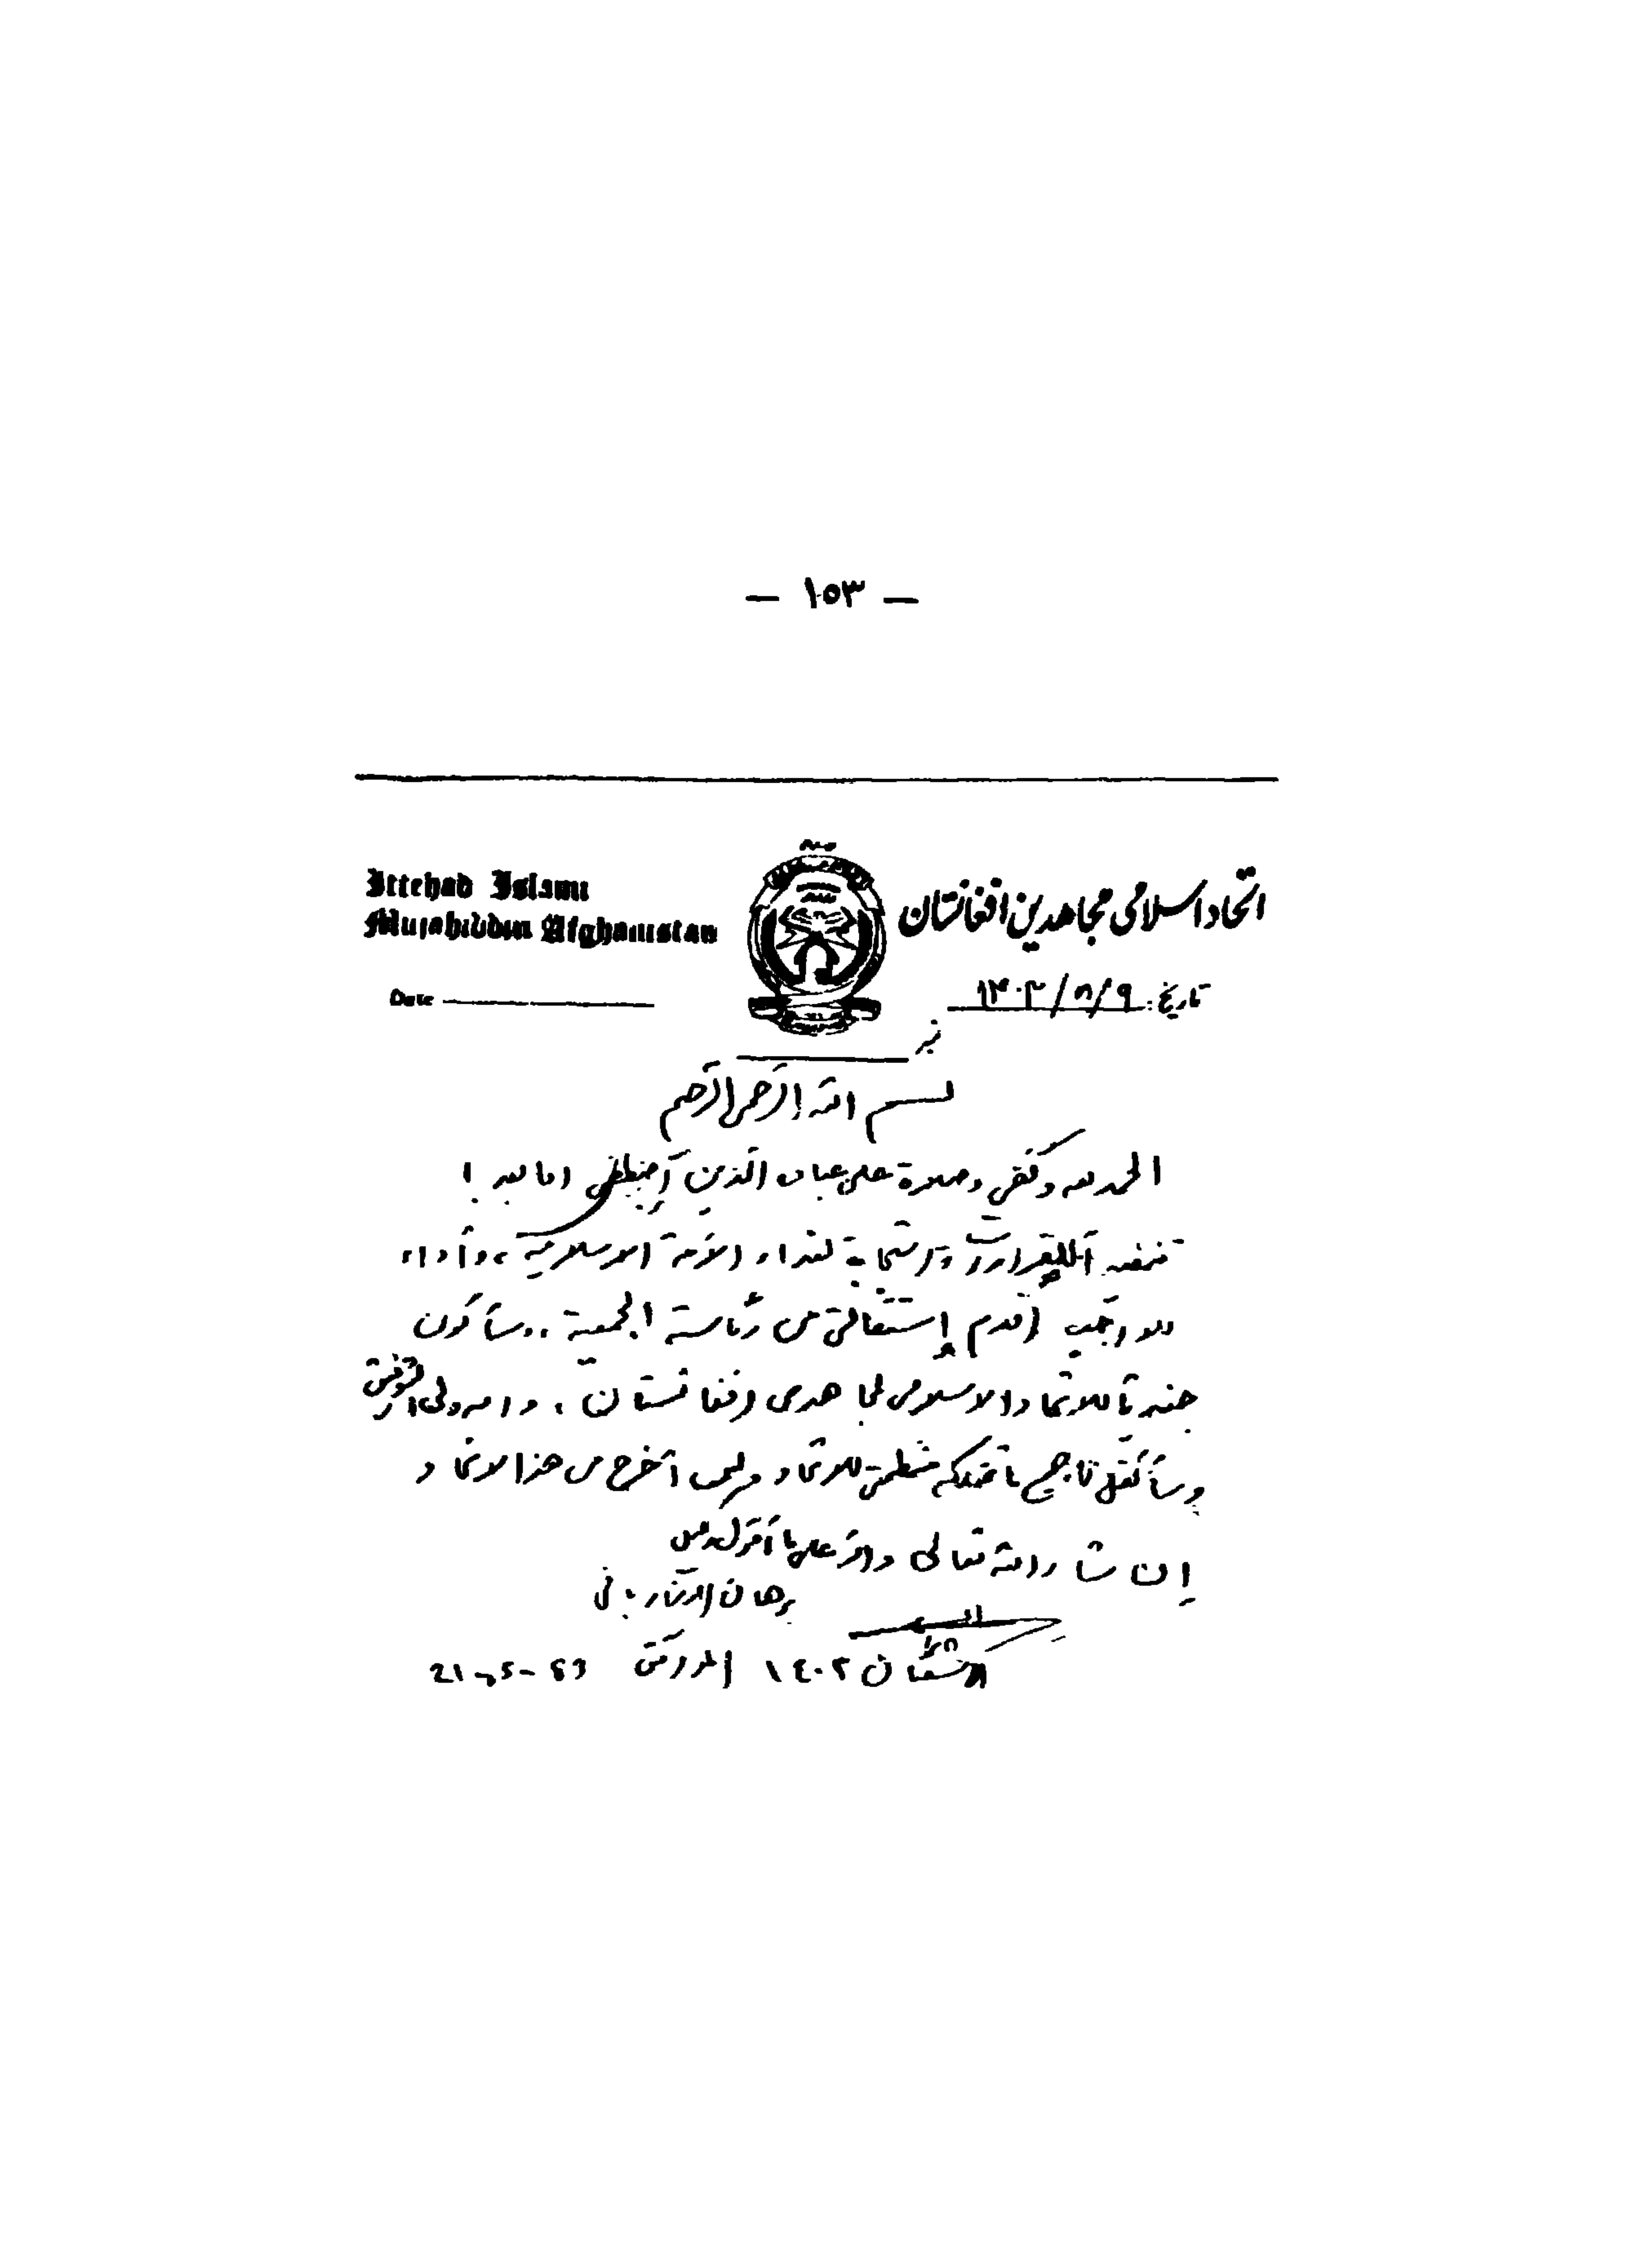 — ١٥٣ —
Ittehad Islami
Mujahiddin Afghanistan
اتحاد اسلامی مجاهدین افغانستان
Date
تاریخ: ۱۴۰۳/۸/۹
بسم الله الرحمن الرحيم
الحمد لله وكفى وصلاة على عباده الذين اصطفى اما بعد!
للقرارات واستجابة لنداء الأمة الاسلامية، وأداء
للواجب أقدم إستقالتي من رئاسة الجمعية .. وسأكون
جنديا للاتحاد الاسلامي لمجاهدي افغانستان، والله ولي التوفيق
وسأنقل جميع ما تملكه منظمتي للاتحاد ولن أخرج من هذا الاتحاد
إن شاء الله تعالى والله على ما أقول وكيل
برهان الدين رباني
شعبان ١٤٠٣ الموافق 21-5-83